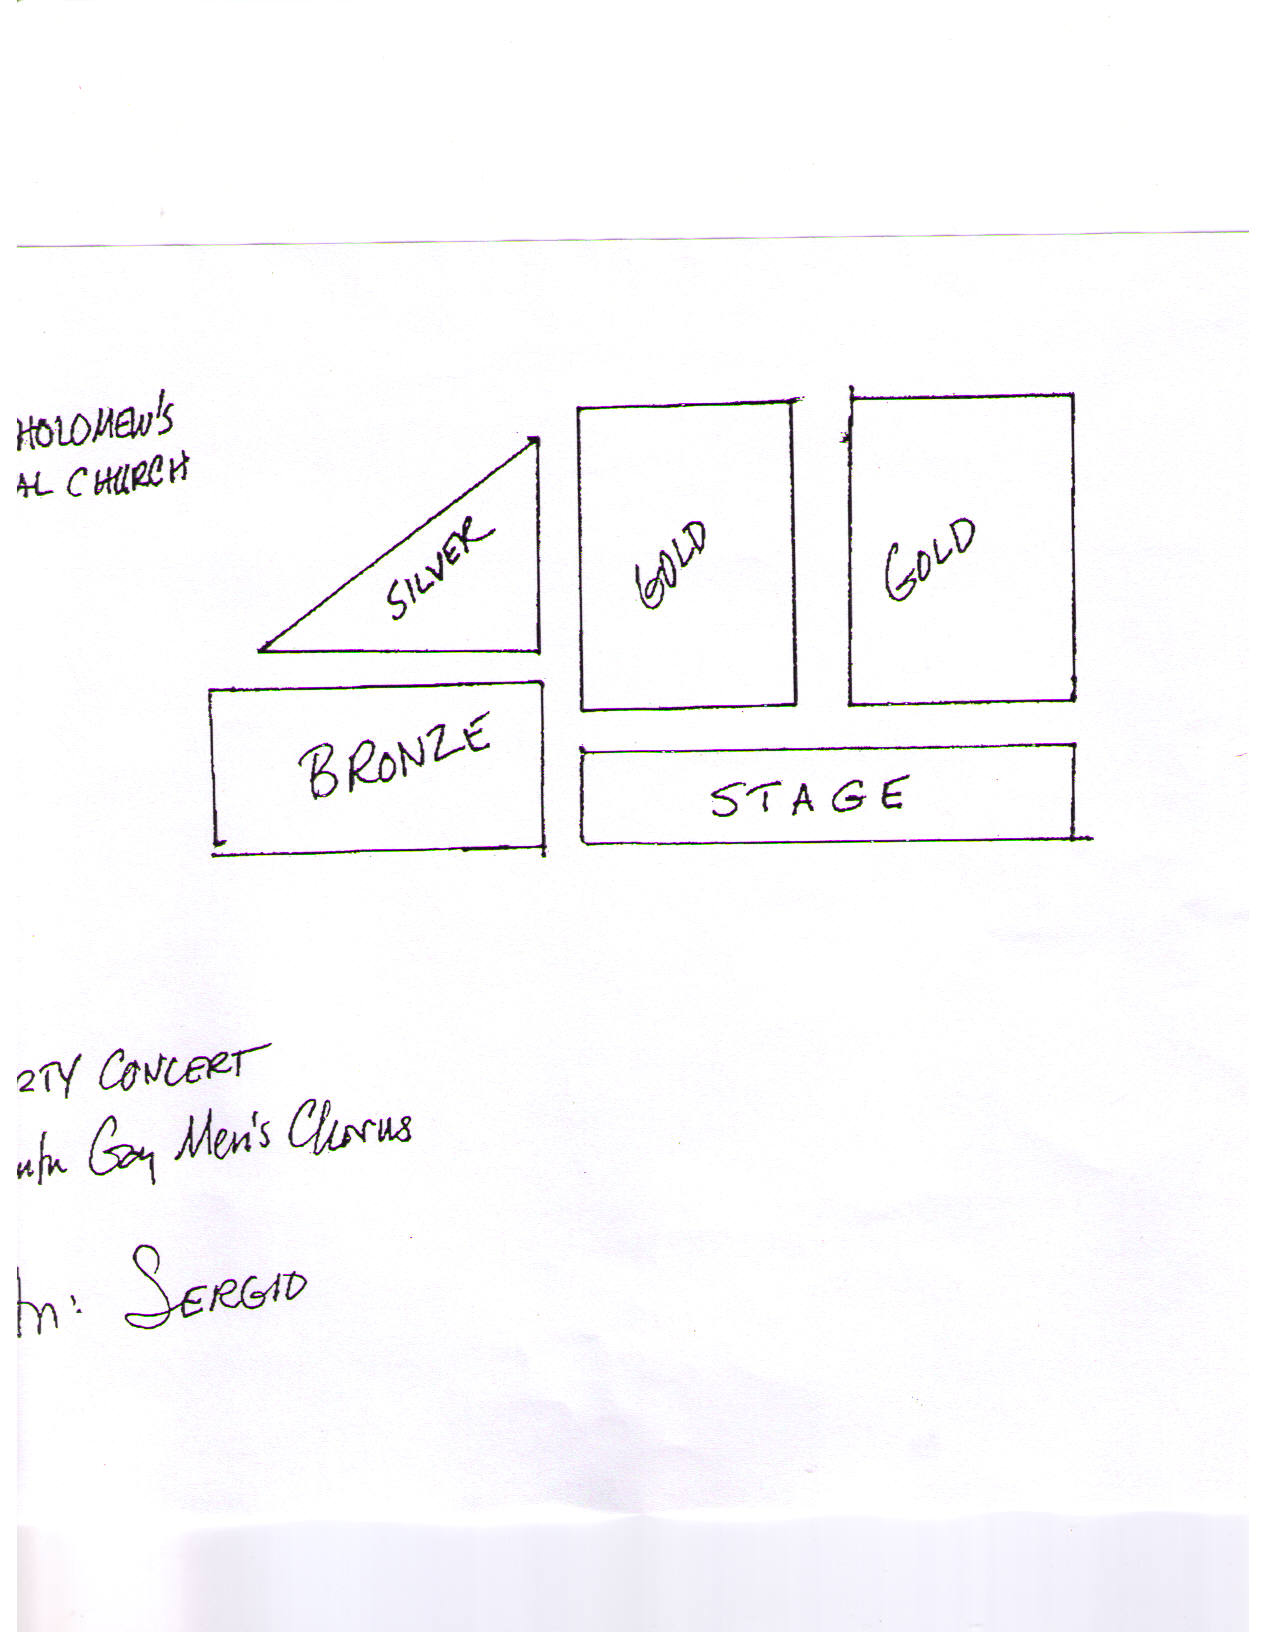 HOLOMEW'S
AL CHURCH
SILVER
GOLD
GOLD
BRONZE
STAGE
RTY CONCERT
Gay Men's Chorus
SERGIO